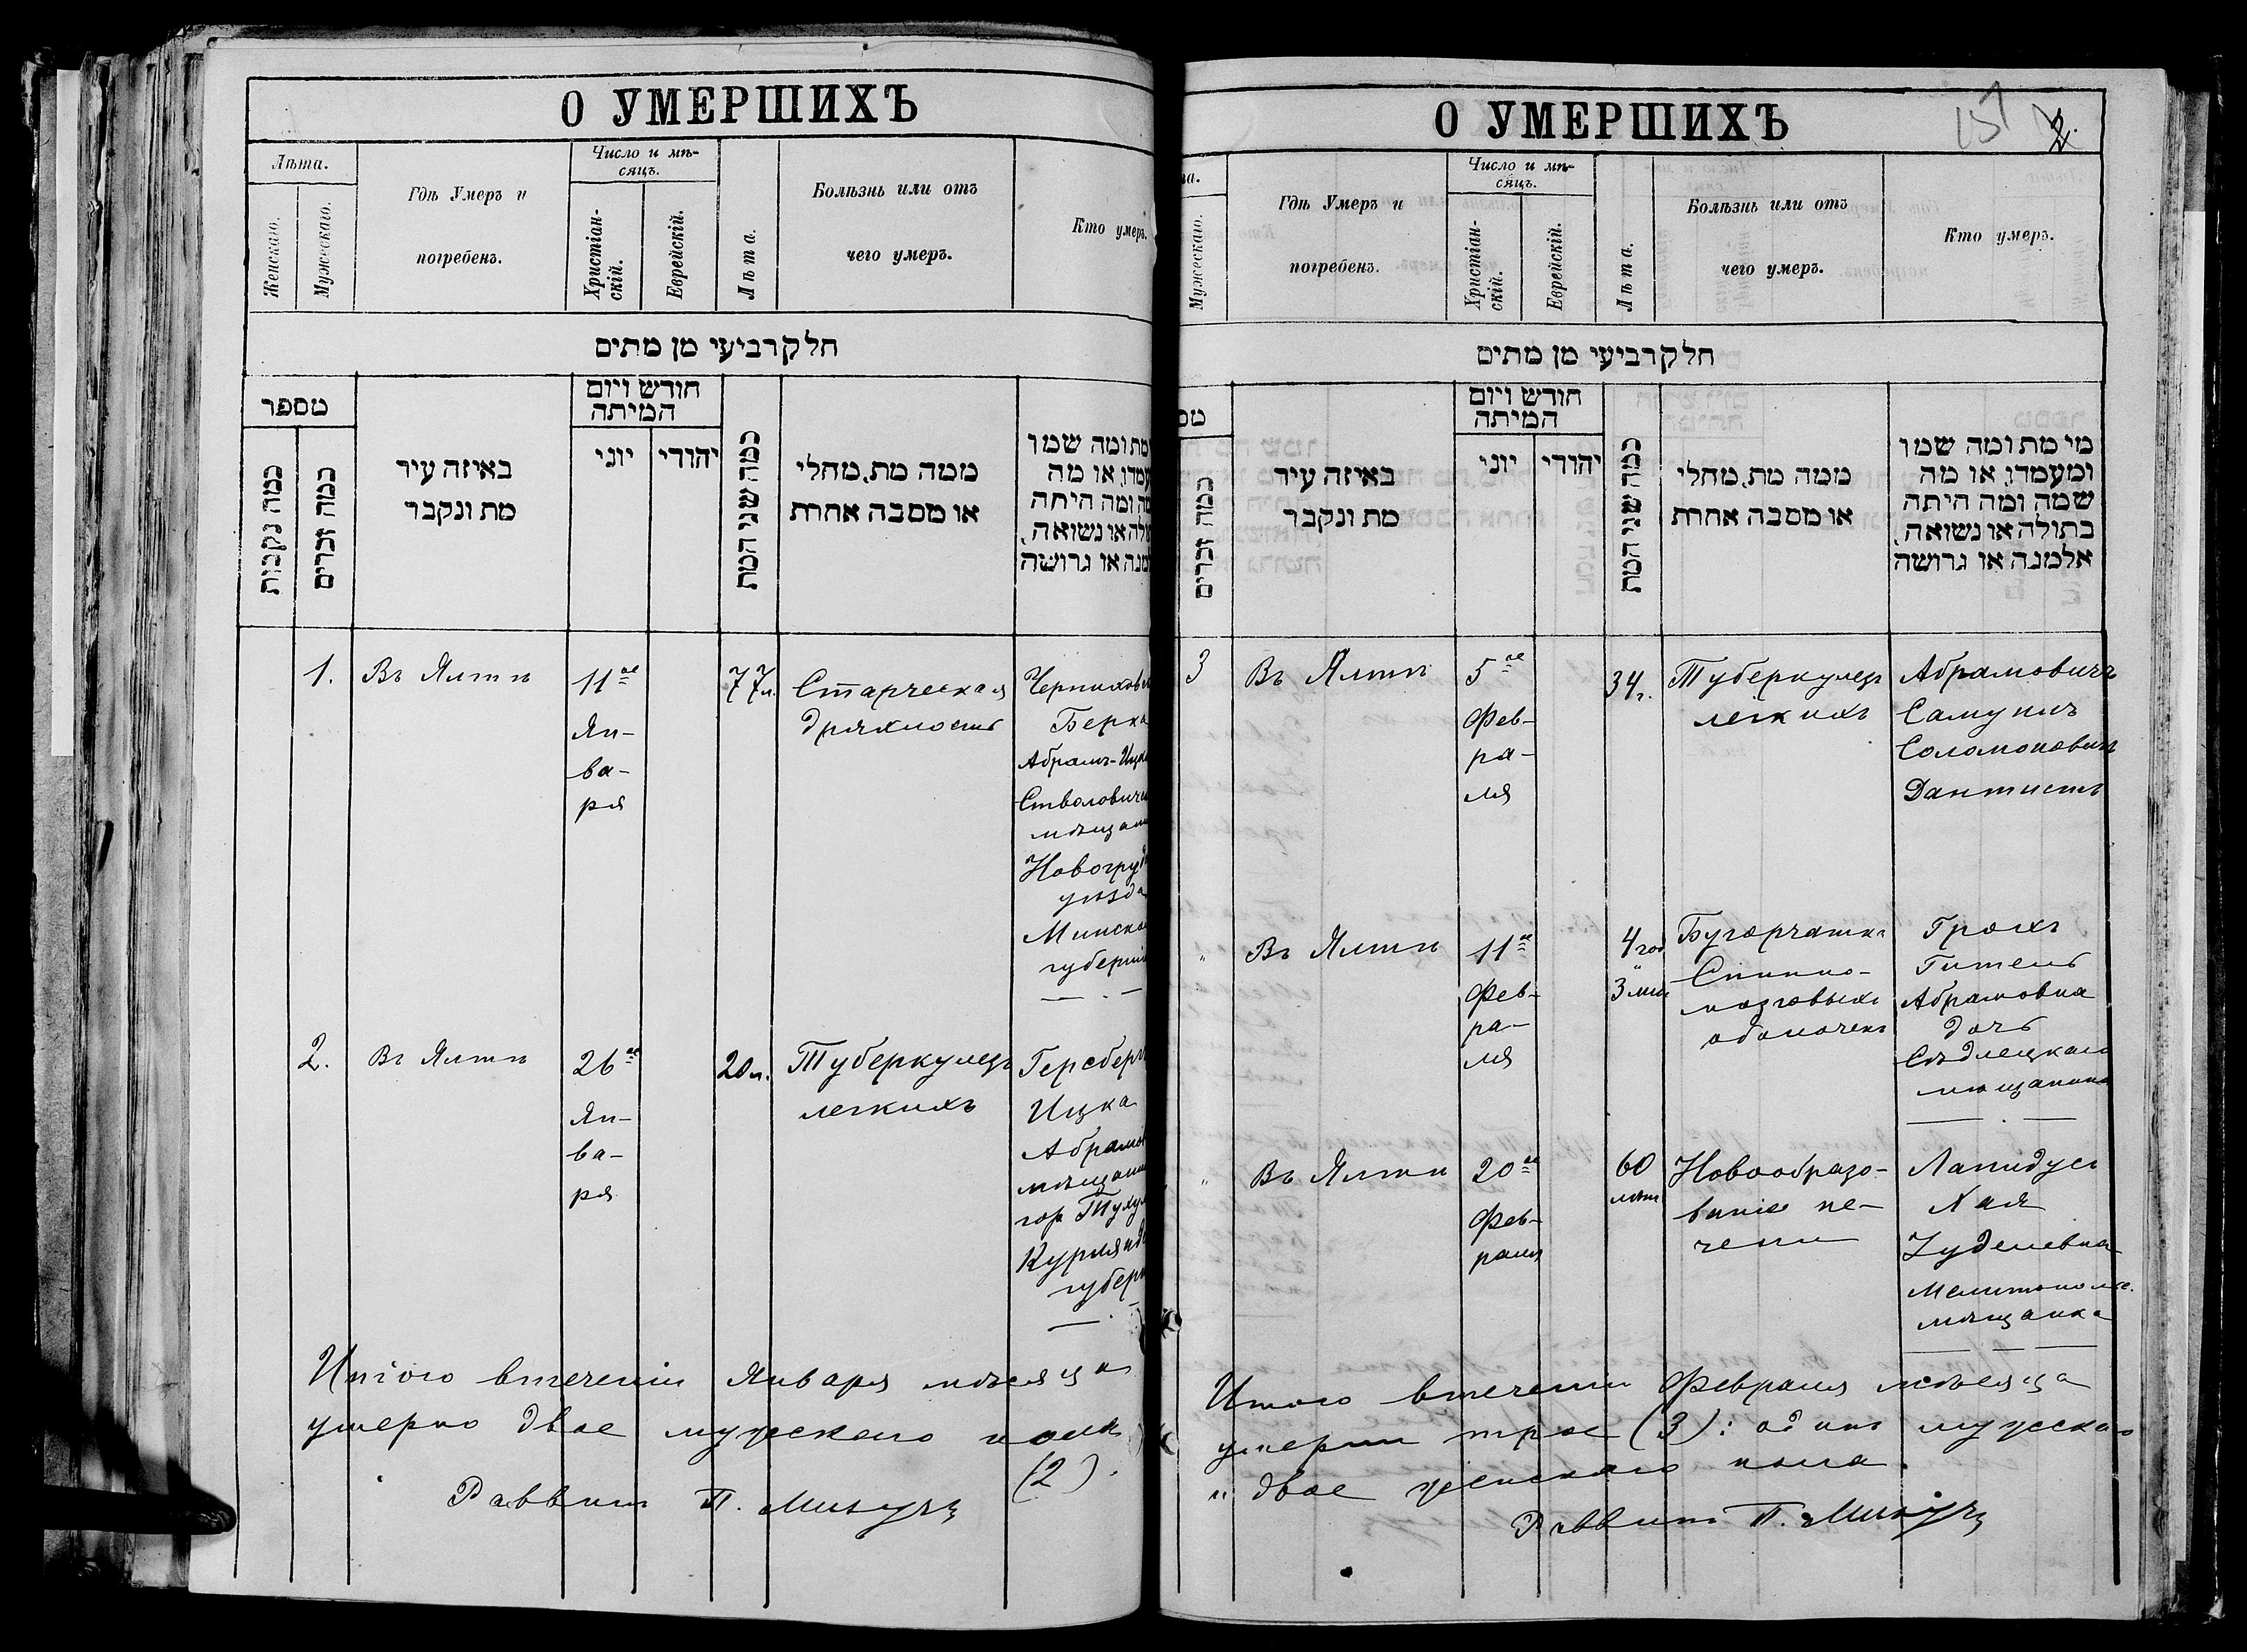 О УМЕРШИХЪ
Лѣта.
Женскаго.
Мужескаго.
Гдѣ Умеръ и
погребенъ.
Число и мѣ-
сяцъ.
Христіан-
скій.
Еврейскій.
Лѣта.
Болѣзнь или отъ
чего умеръ.
Кто умеръ.
חלק רביעי מן מתים
מספר
כמה נקבות
כמה זכרים
באיזה עיר
מת ונקבר
חודש ויום
המיתה
יוני
יהודי
כמה שני המת
ממה מת, מחלי
או מסבה אחרת
מת ומה שמו
או מה
ומה היתה
או נשואה,
או גרושה
1.
Въ Ялтѣ
11ое
Ян-
ва-
ря
77 л.
Старческая
дряхлость
Берка
Абрамъ-Ицка
Новогруд
уѣзда
Минской
губерніи
2.
Въ Ялтѣ
26ое
Ян-
ва-
ря
20 л.
Туберкулезъ
легкихъ
Герсберг
Ицка
Абрамов
мѣщани
гор
Курлянд
губерн
Итого втеченіи Января мѣсяца
умерло двое мужескаго пола
(2).
Раввинъ П.
О УМЕРШИХЪ
157
2.
Мужескаго.
Гдѣ Умеръ и
погребенъ.
Число и мѣ-
сяцъ.
Христіан-
скій.
Еврейскій.
Лѣта.
Болѣзнь или отъ
чего умеръ.
Кто умеръ.
חלק רביעי מן מתים
מס
כמה זכרים
באיזה עיר
מת ונקבר
חודש ויום
המיתה
יוני
יהודי
כמה שני המת
ממה מת, מחלי
או מסבה אחרת
מי מת ומה שמו
ומעמדו, או מה
שמה ומה היתה
בתולה או נשואה,
אלמנה או גרושה
3
Въ Ялтѣ
5ое
Фев-
ра-
ля
34 г.
Туберкулезъ
легкихъ
Абрамовичъ
Самуилъ
Соломоновичъ
Дантистъ
"
Въ Ялтѣ
11ое
Фев-
ра-
ля
4 год
3 мѣс
Бугорчатка
Спинно-
мозговыхъ
оболочекъ
Грохъ
Гитель
Абрамовна
дочь
Сѣдлецкаго
мѣщанина
"
Въ Ялтѣ
20ое
Фев-
раля
60
лѣт
Новообразо-
ваніе пе-
чени
Лапидусъ
Хая
Зуделевна
Мелитопольс.
мѣщанка
Итого втеченіи Февраля мѣсяца
умерли трое (3): одинъ мужескаго
и двое женскаго пола.
Раввинъ П.